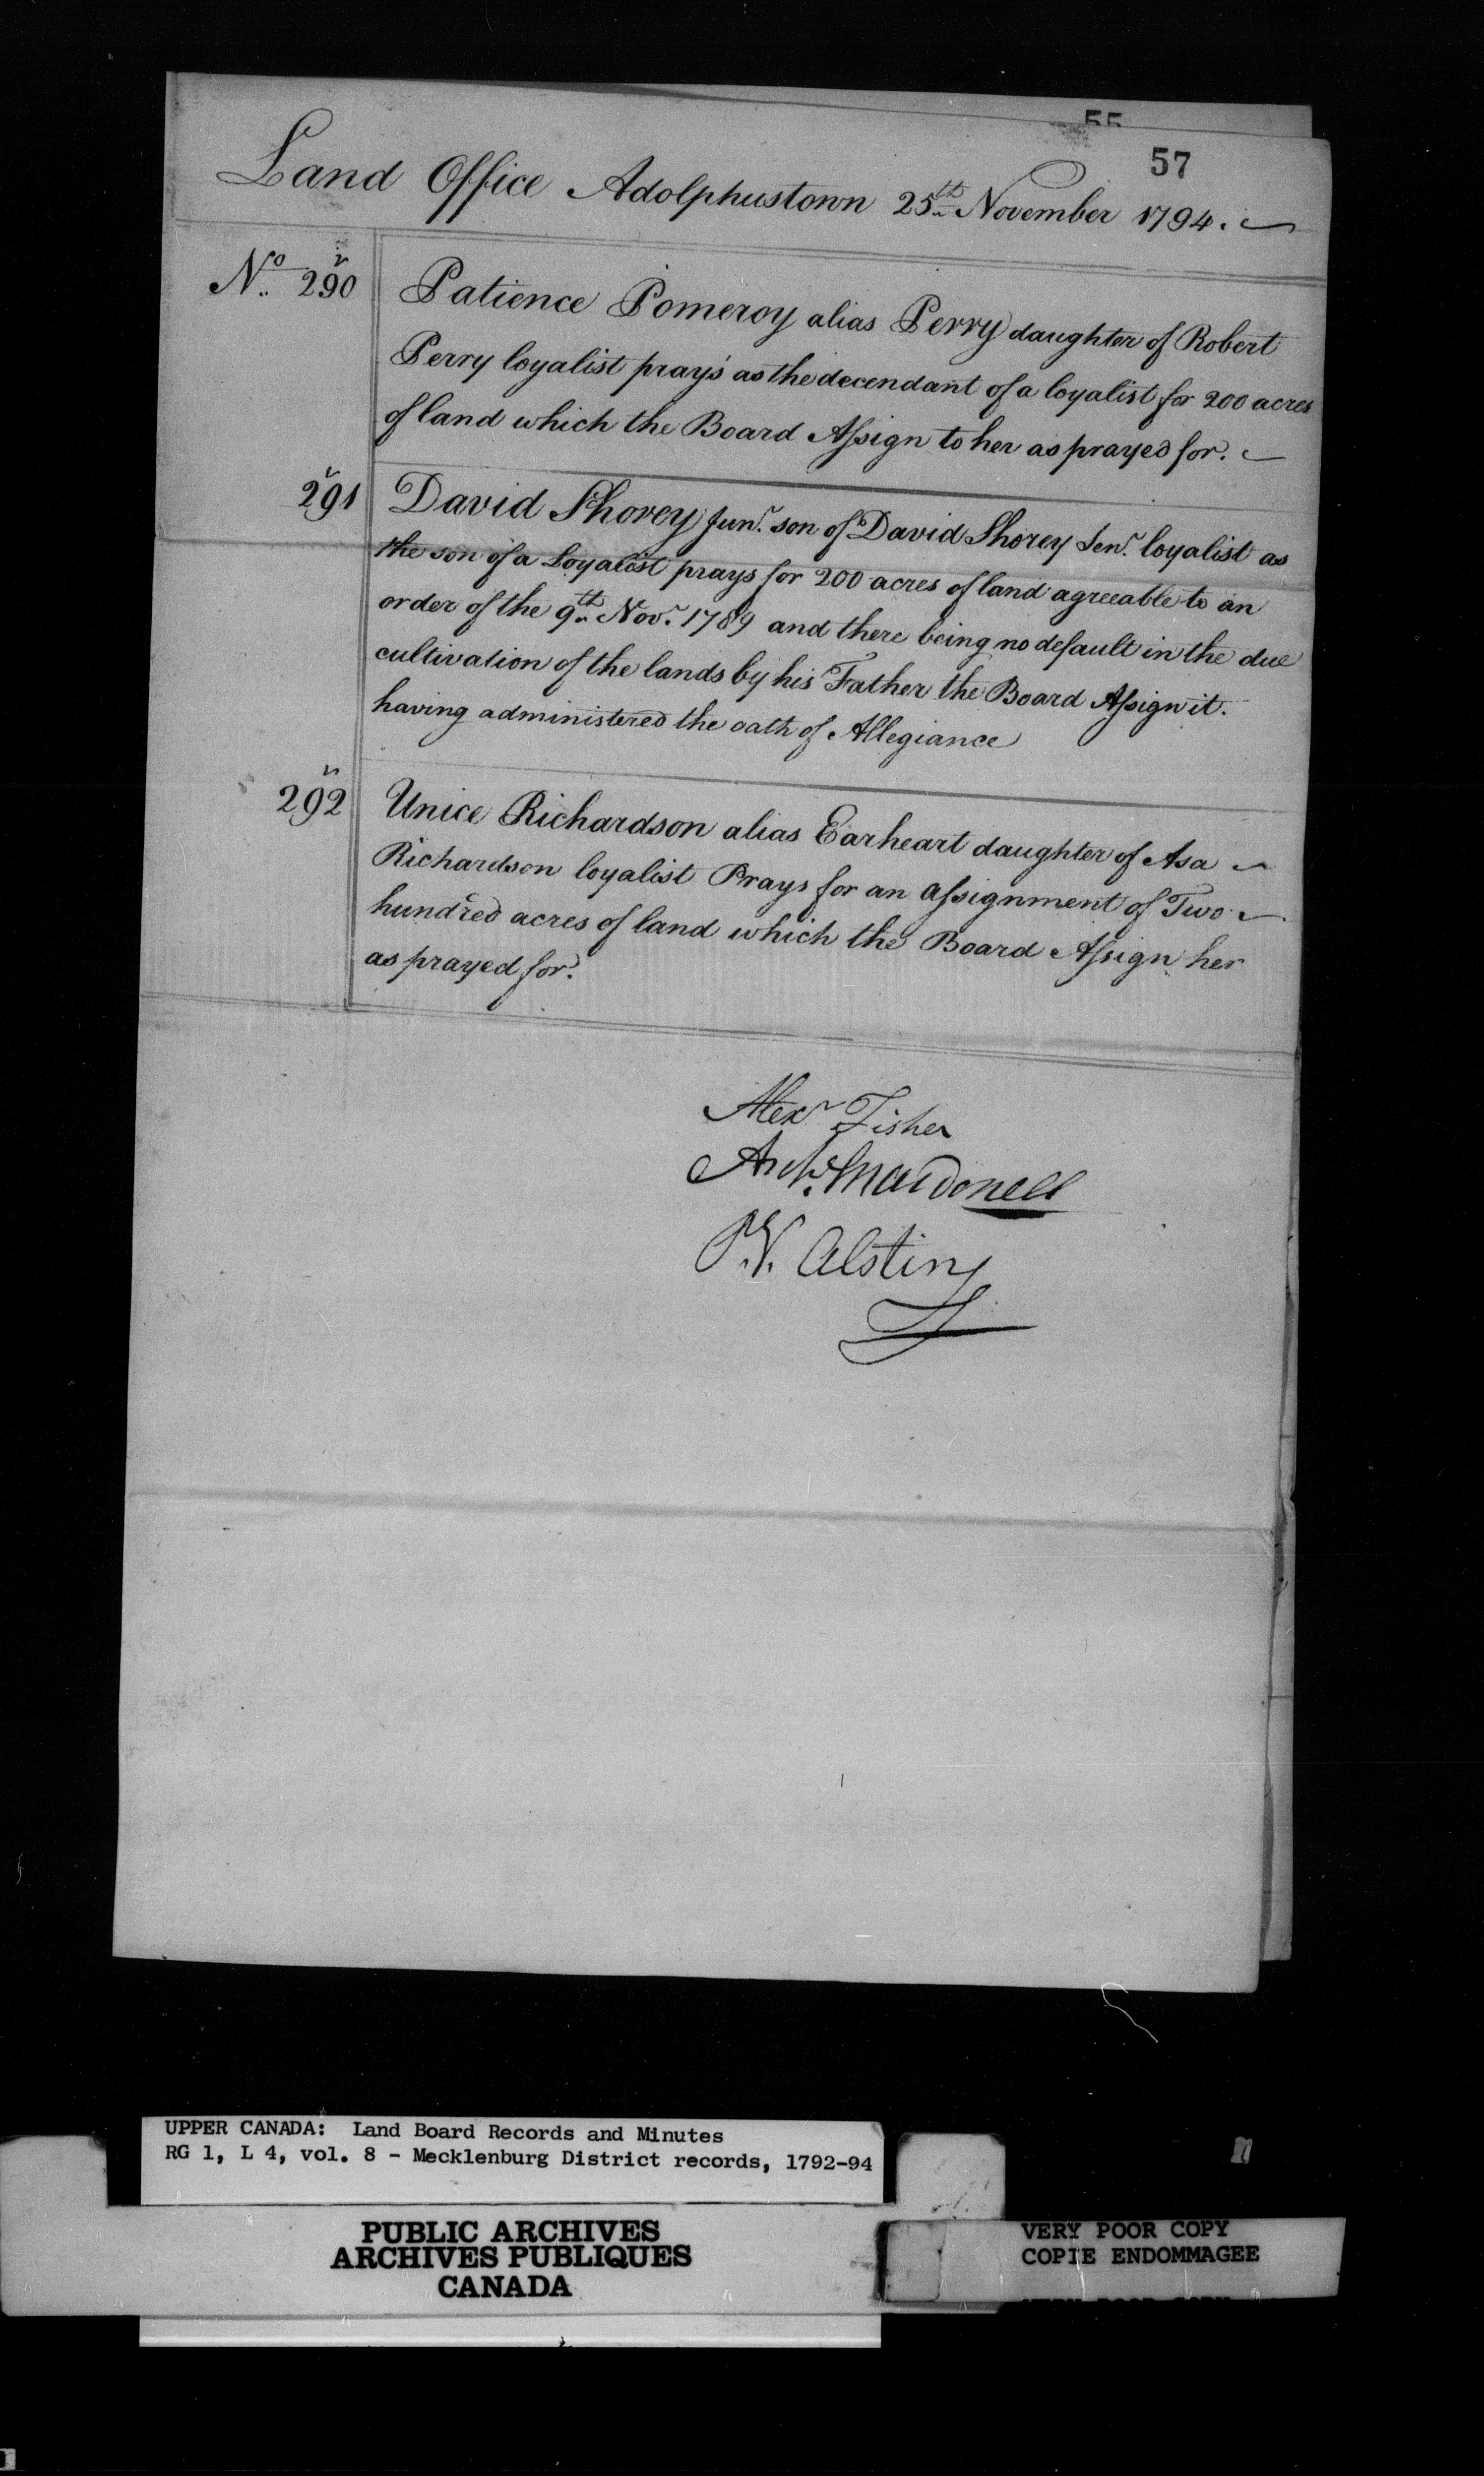 55
57
Land Office Adolphustown 25th November 1794.
No. 290
Patience Pomeroy alias Perry daughter of Robert
Perry loyalist prays as the decendant of a loyalist for 200 acres
of land which the Board Assign to her as prayed for.
291
David Shorey Junr. son of David Shorey Senr. loyalist as
the son of a Loyalist prays for 200 acres of land agreeable to an
order of the 9th Novr. 1789 and there being no default in the due
cultivation of the lands by his Father the Board Assign it.
having administered the oath of Allegiance
292
Unice Richardson alias Earheart daughter of Asa
Richardson loyalist Prays for an assignment of Two
hundred acres of land which the Board Assign her
as prayed for.
Alexr Fisher
Archd. Macdonell
P.V. Alstine
UPPER CANADA: Land Board Records and Minutes
RG 1, L 4, vol. 8 - Mecklenburg District records, 1792-94
PUBLIC ARCHIVES
ARCHIVES PUBLIQUES
CANADA
VERY POOR COPY
COPIE ENDOMMAGEE